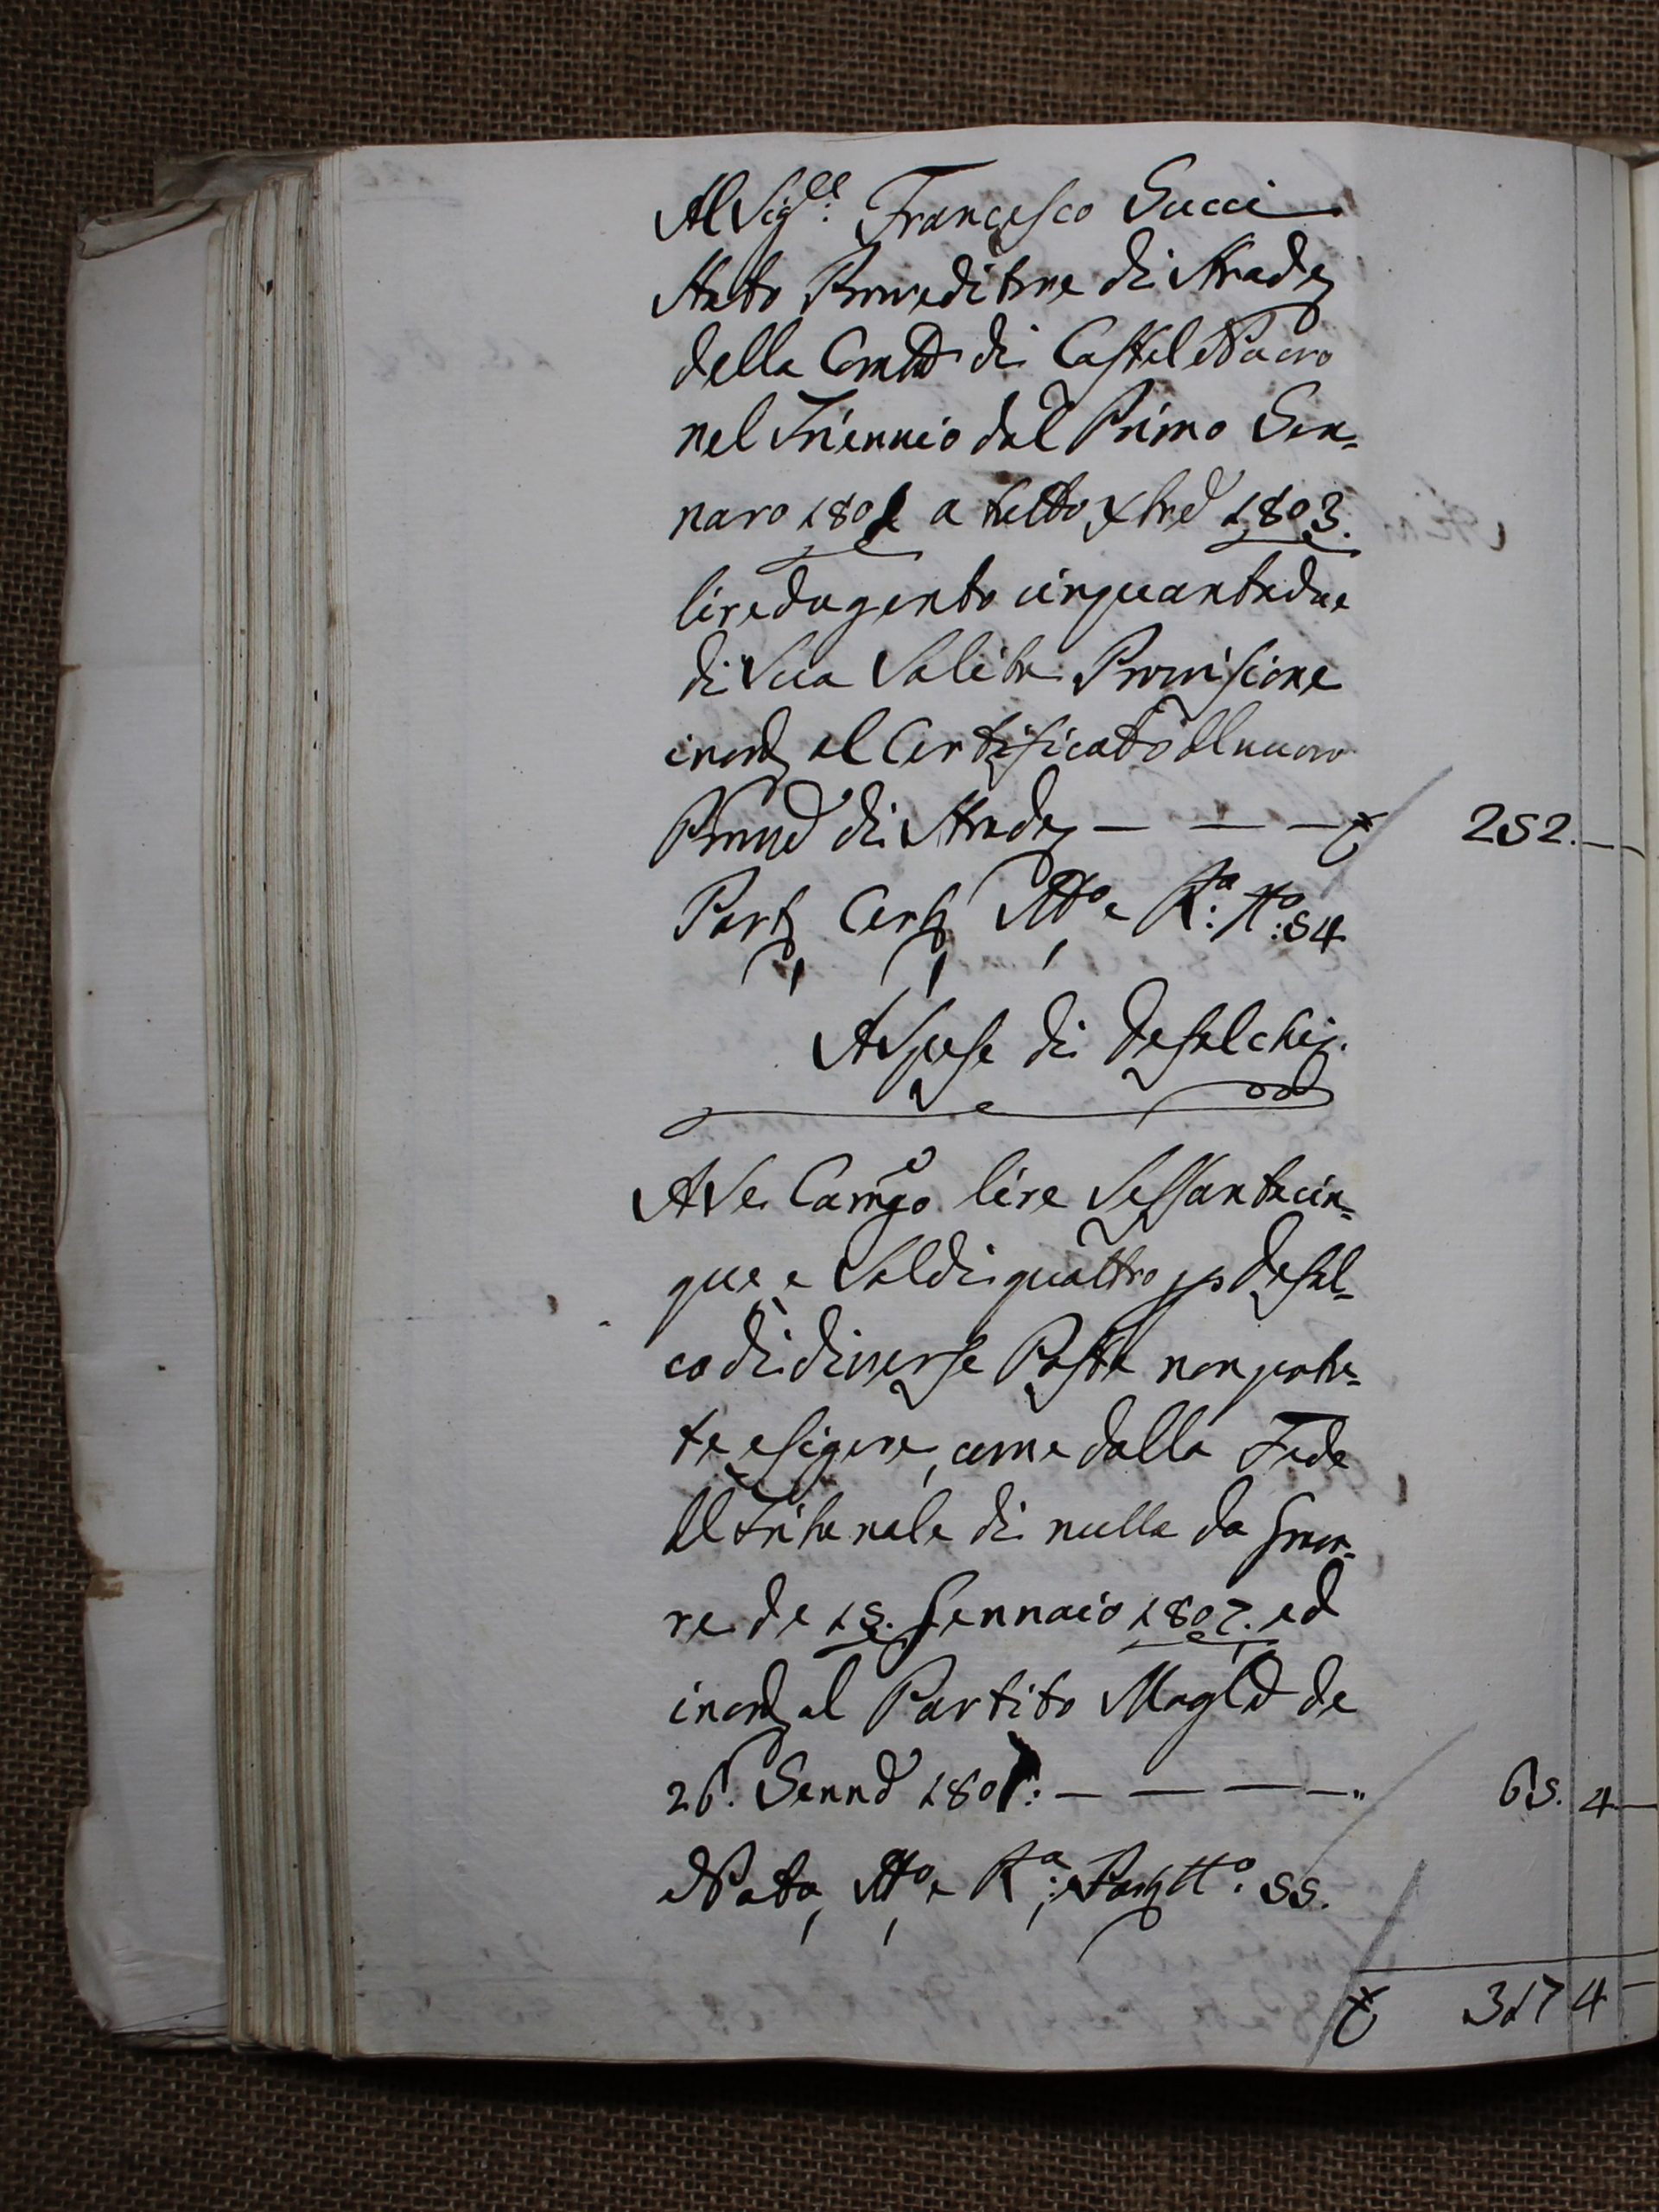 Al Sig.re Francesco Gucci
stato Provveditore di Strade
della Comtà di Castel Nuovo
nel Triennio dal Primo Gen=
naro 1801 a tutto Xbre 1803.
lire dugento cinquantadue
di Sua Solita Provvisione
in ord. al Certificato del nuovo
Provved.e di Strade — — — £ 252.—
Part. Cert. Atto e R.a N.o: 54
A Spese di Defalchi.
A Se Camgo. lire Sessantacin=
que e Soldi quattro p. Defal=
co di diverse Poste non potu=
te esigere, come dalla Fede
del Tribunale di nulla da Gravar=
re de 15. Gennaio 1807. ed
in ord. al Partito Magle de
26. Genno 1807: — — — — " 65. 4 —
Nota, Atto e R.a: Part. N.o: 55.
£ 317 4 —